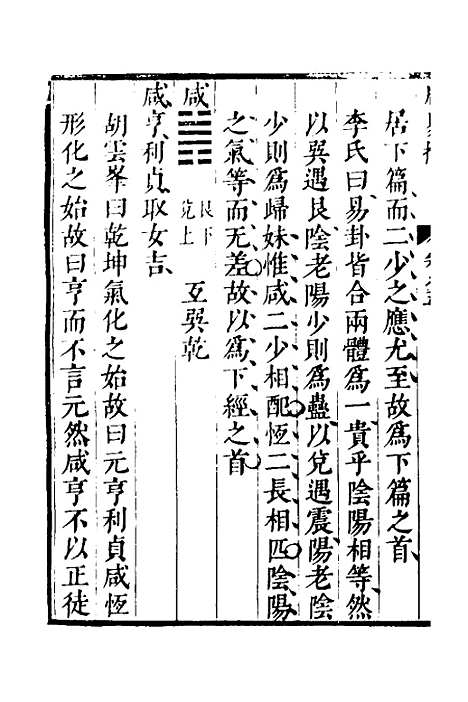 居下篇而二少之應尤至故爲下篇之首
李氏曰易卦皆合兩體爲一貴乎陰陽相等然
以巽遇艮陰老陽少則爲蠱以兌遇震陽老陰
少則爲歸妹惟咸二少相配恆二長相匹陰陽
之氣等而无差故以爲下經之首
咸 艮下兌上 互巽乾
咸亨利貞取女吉
胡雲峯曰乾坤氣化之始故曰元亨利貞咸恆
形化之始故曰亨而不言元然咸亨不以正徒